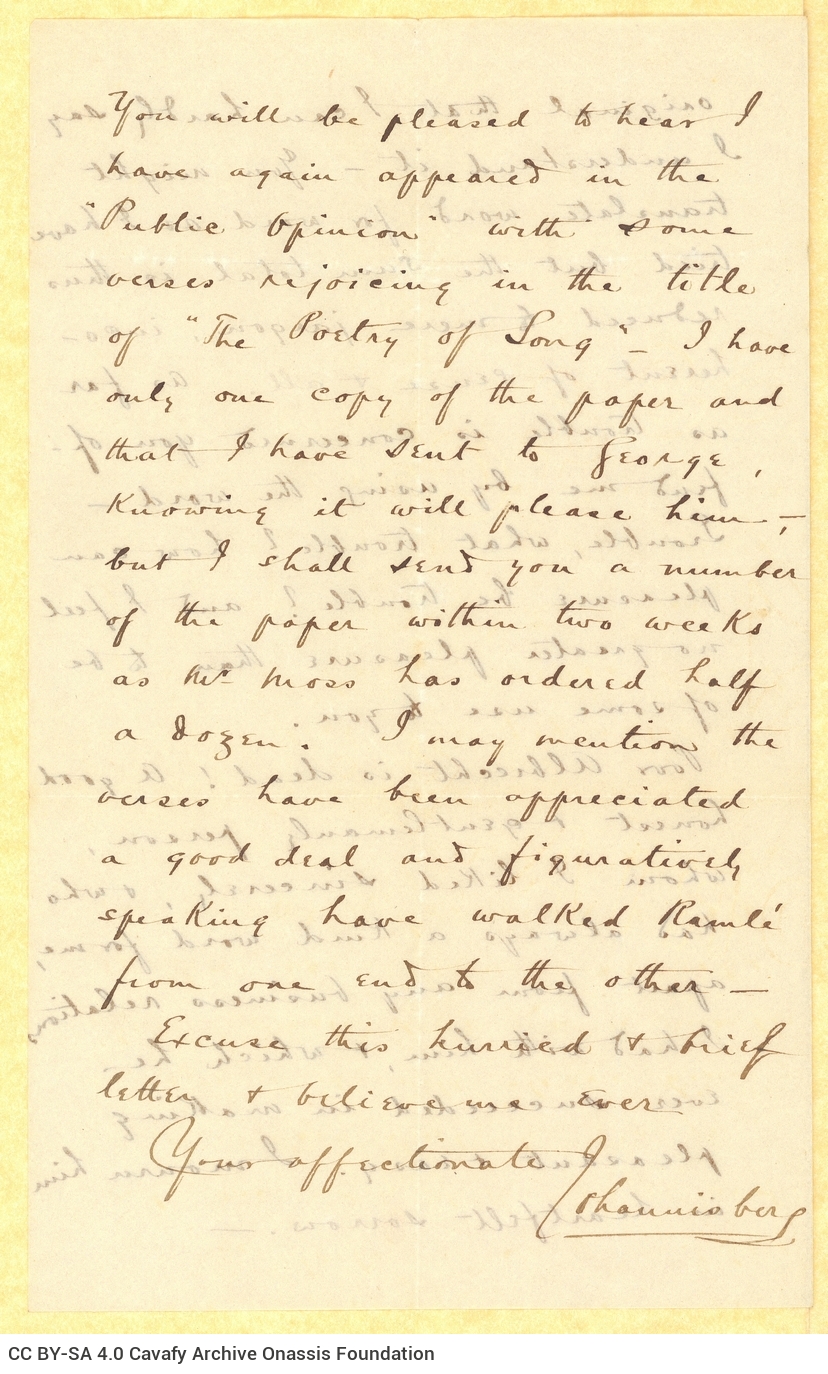 You will be pleased to hear I
have again appeared in the
"Public Opinion" with some
verses rejoicing in the title
of "The Poetry of Song" — I have
only one copy of the paper and
that I have sent to George,
knowing it will please him —;
but I shall send you a number
of the paper within two weeks
as Mr Moss has ordered half
a dozen. I may mention the
verses have been appreciated
a good deal and figuratively
speaking have walked Ramlé
from one end to the other —
Excuse this hurried & brief
letter & believe me ever
Your affectionate
Johannisberg
CC BY-SA 4.0 Cavafy Archive Onassis Foundation